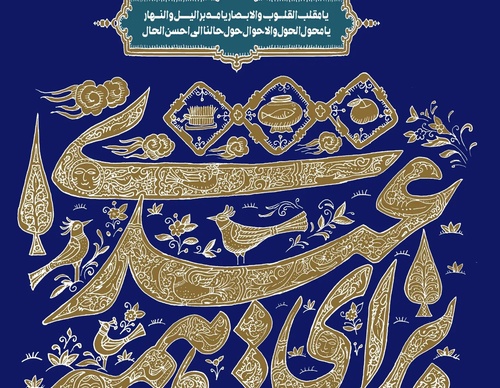 یا مقلب القلوب والابصار یا مدبر اللیل والنهار
یا محول الحول والاحوال حول حالنا الی احسن الحال
عیدی
برای